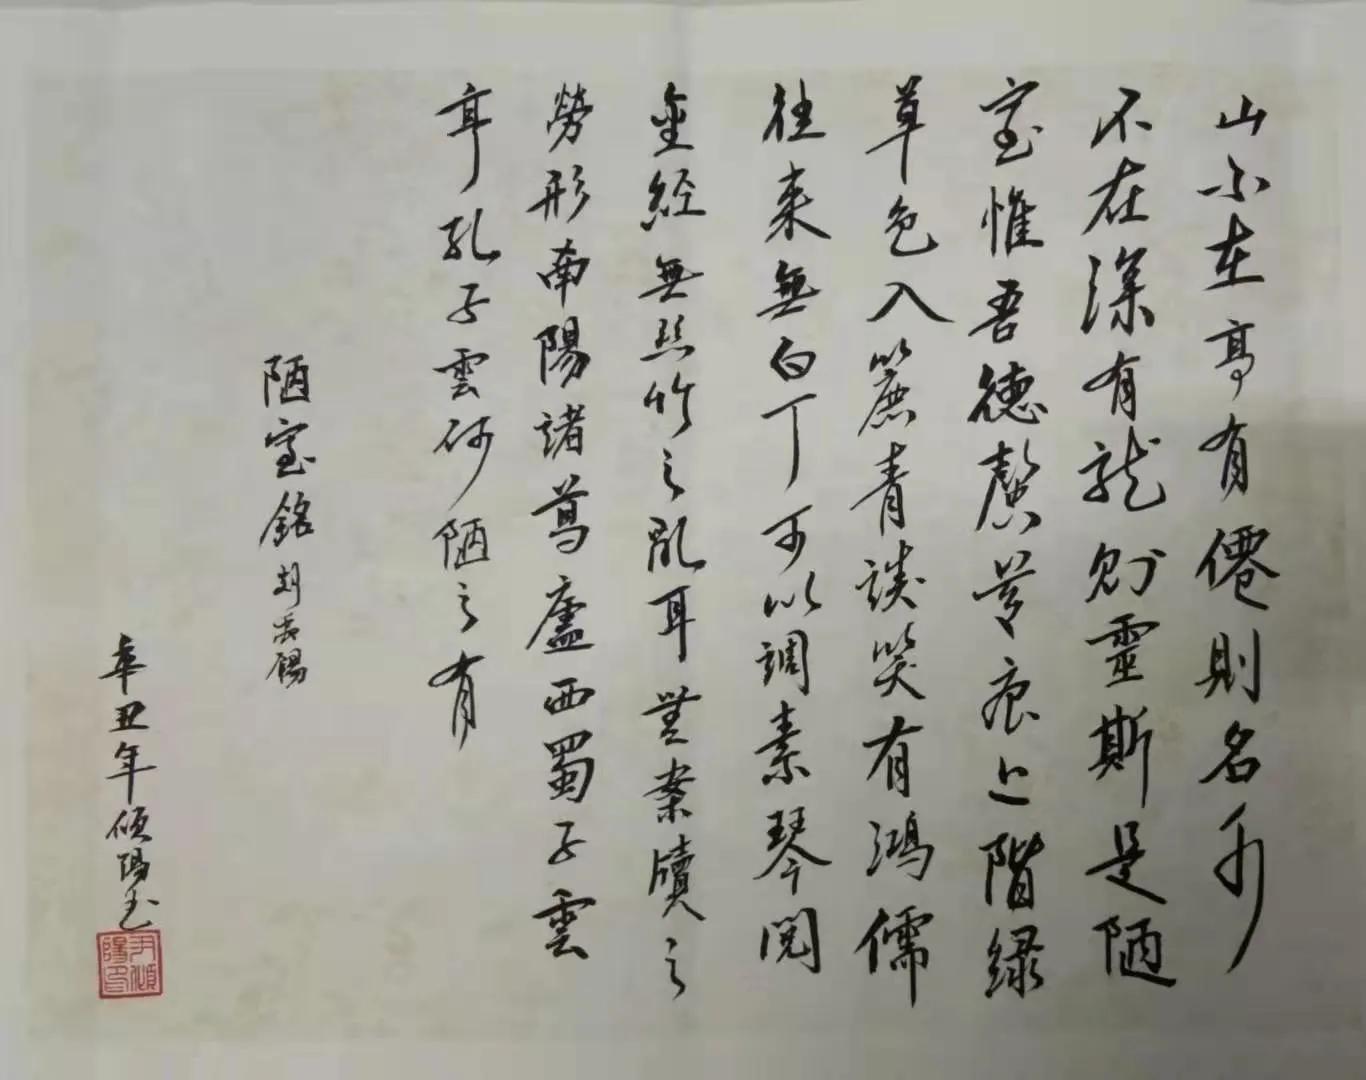 山不在高有僊則名水
不在深有龍則靈斯是陋
室惟吾德馨苔痕上階緑
草色入簾青談笑有鴻儒
往来無白丁可以調素琴閲
金經無丝竹之亂耳無案牘之
勞形南陽諸葛廬西蜀子雲
亭孔子雲何陋之有
陋室銘 刘禹锡
辛丑年 頌陽书
尹頌陽印